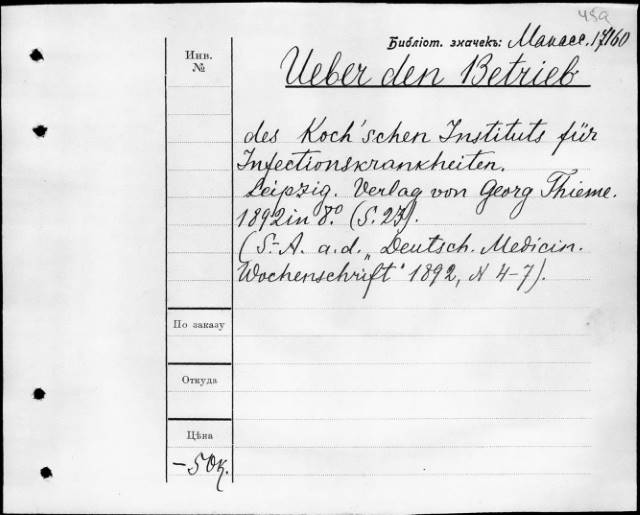 45a
Библiот. значекъ: Манасс. 17160
Инв.
№
Ueber den Betrieb
des Koch'schen Instituts für
Infectionskrankheiten.
Leipzig. Verlag von Georg Thieme.
1892 in 8.° (S. 23).
(S.-A. a. d. „Deutsch. Medicin.
Wochenschrift" 1892, N 4-7).
По заказу
Откуда
Цѣна
-50к.